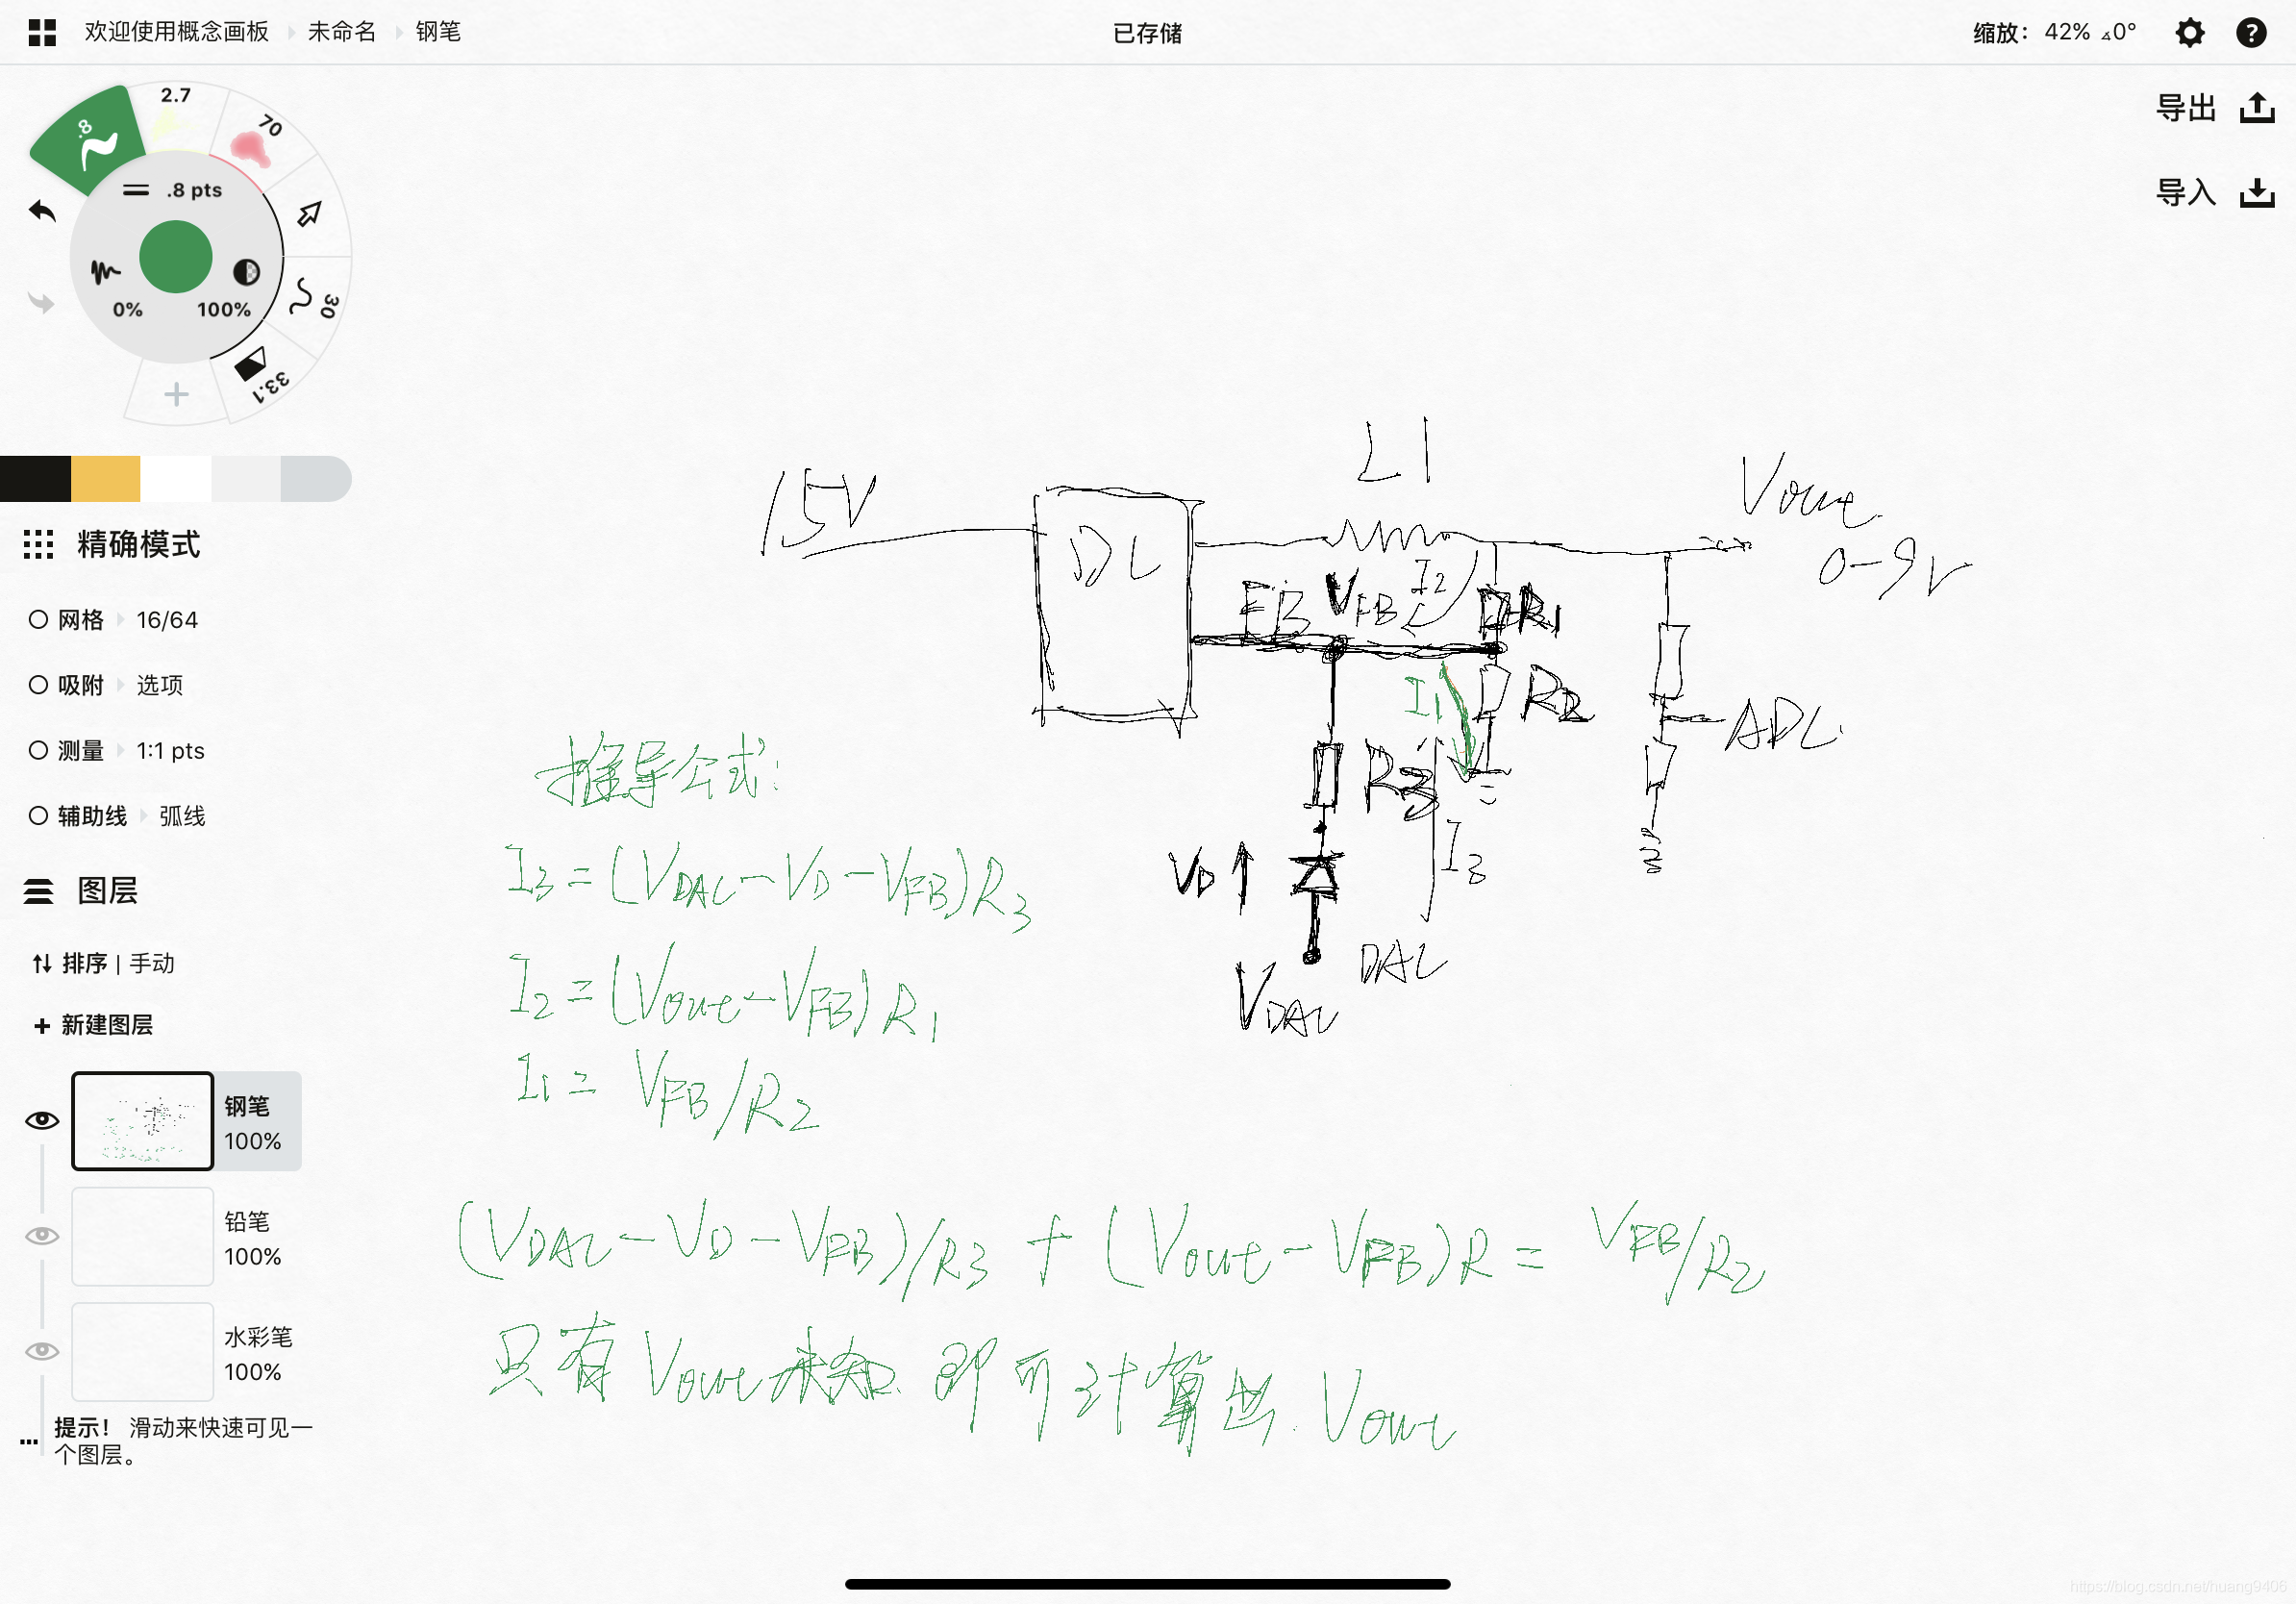 欢迎使用概念画板 未命名 钢笔
已存储
缩放： 42% ⊿0°
导出
导入
2.7
.8
70
.8 pts
0%
100%
30
33.1
精确模式
网格 16/64
吸附 选项
测量 1:1 pts
辅助线 弧线
图层
排序 | 手动
+ 新建图层
钢笔
100%
铅笔
100%
水彩笔
100%
提示！ 滑动来快速可见一
个图层。
L1
15V
Vout
0-9V
DC
FB VFB I2 R1
I1 R2
ADC
R3
VD
I3
DAC
VDAC
推导公式：
I3 = (VDAC - VD - VFB) R3
I2 = (Vout - VFB) R1
I1 = VFB/R2
(VDAC - VD - VFB)/R3 + (Vout - VFB) R = VFB/R2
只有 Vout 未知 即可计算出 Vout
https://blog.csdn.net/huang9406